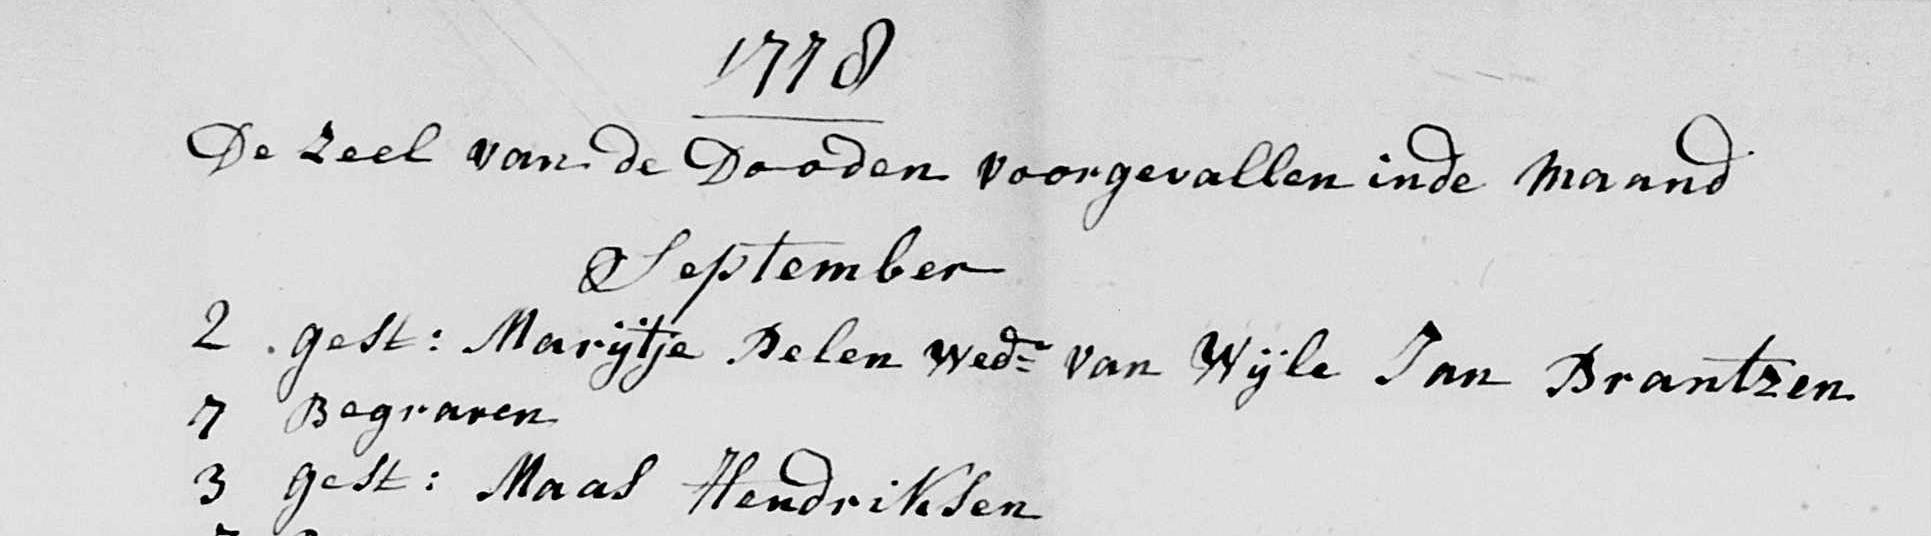 1778
De Zeel van de Dooden voorgevallen inde Maand
September
2 gest: Marijtje Delen Wedr van Wijle Jan Brantzen
7 Begraven
3 gest: Maas Hendriksen